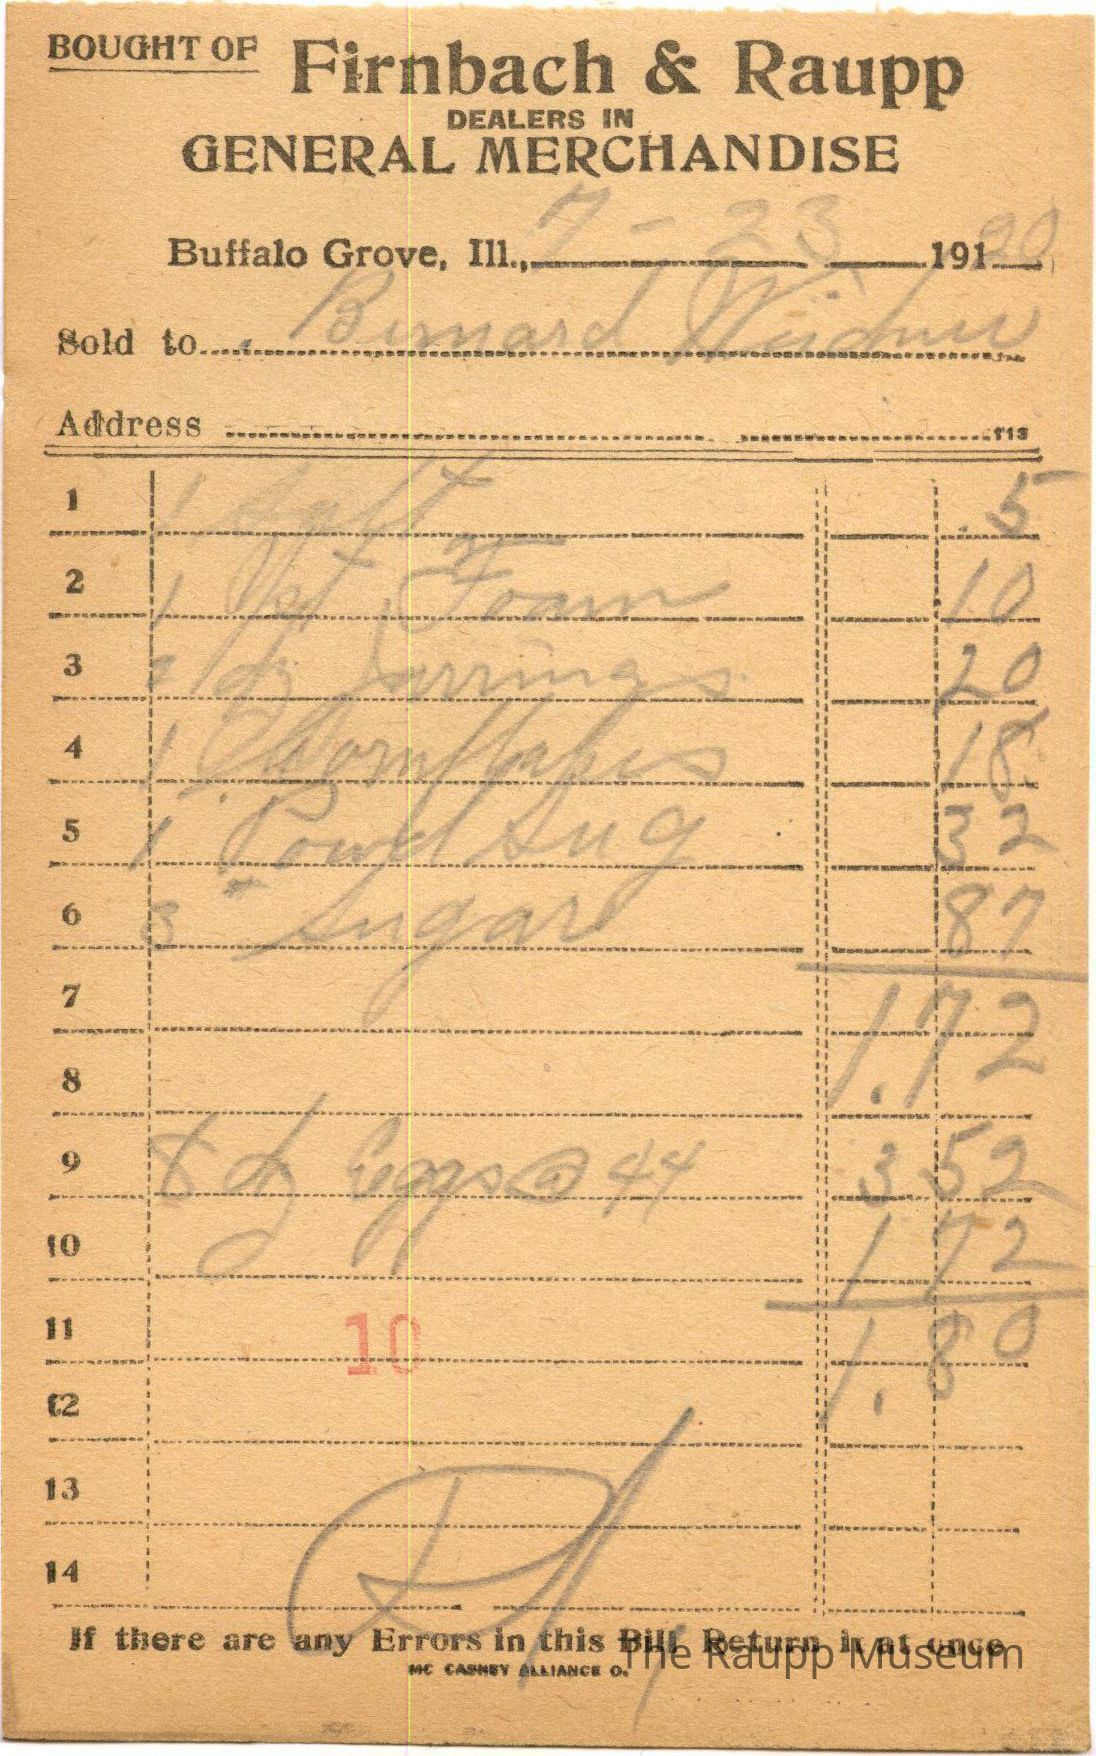 BOUGHT OF Firnbach & Raupp
DEALERS IN
GENERAL MERCHANDISE
Buffalo Grove, Ill., 7 - 23 191 20
Sold to Bernard Weidner
Address
1 1 Salt 5
2 1 Yst Foam 10
3 2 dz Jarrings 20
4 1 Cornflakes 18
5 1 Powd Sug 32
6 3 " Sugar 87
7 1.72
8
9 8 dz Eggs @ 44 3.52
10 1 72
11 10 1.80
12
13
14
If there are any Errors in this Bill Return it at once
MC CASKEY ALLIANCE O.
The Raupp Museum